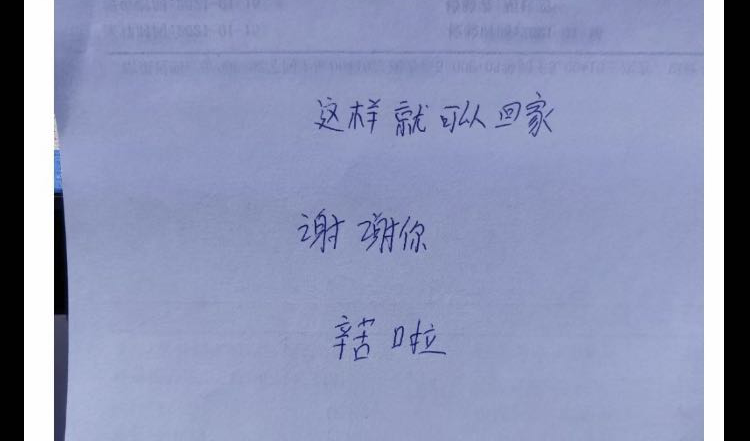 这样就可以回家
谢谢你
辛苦啦